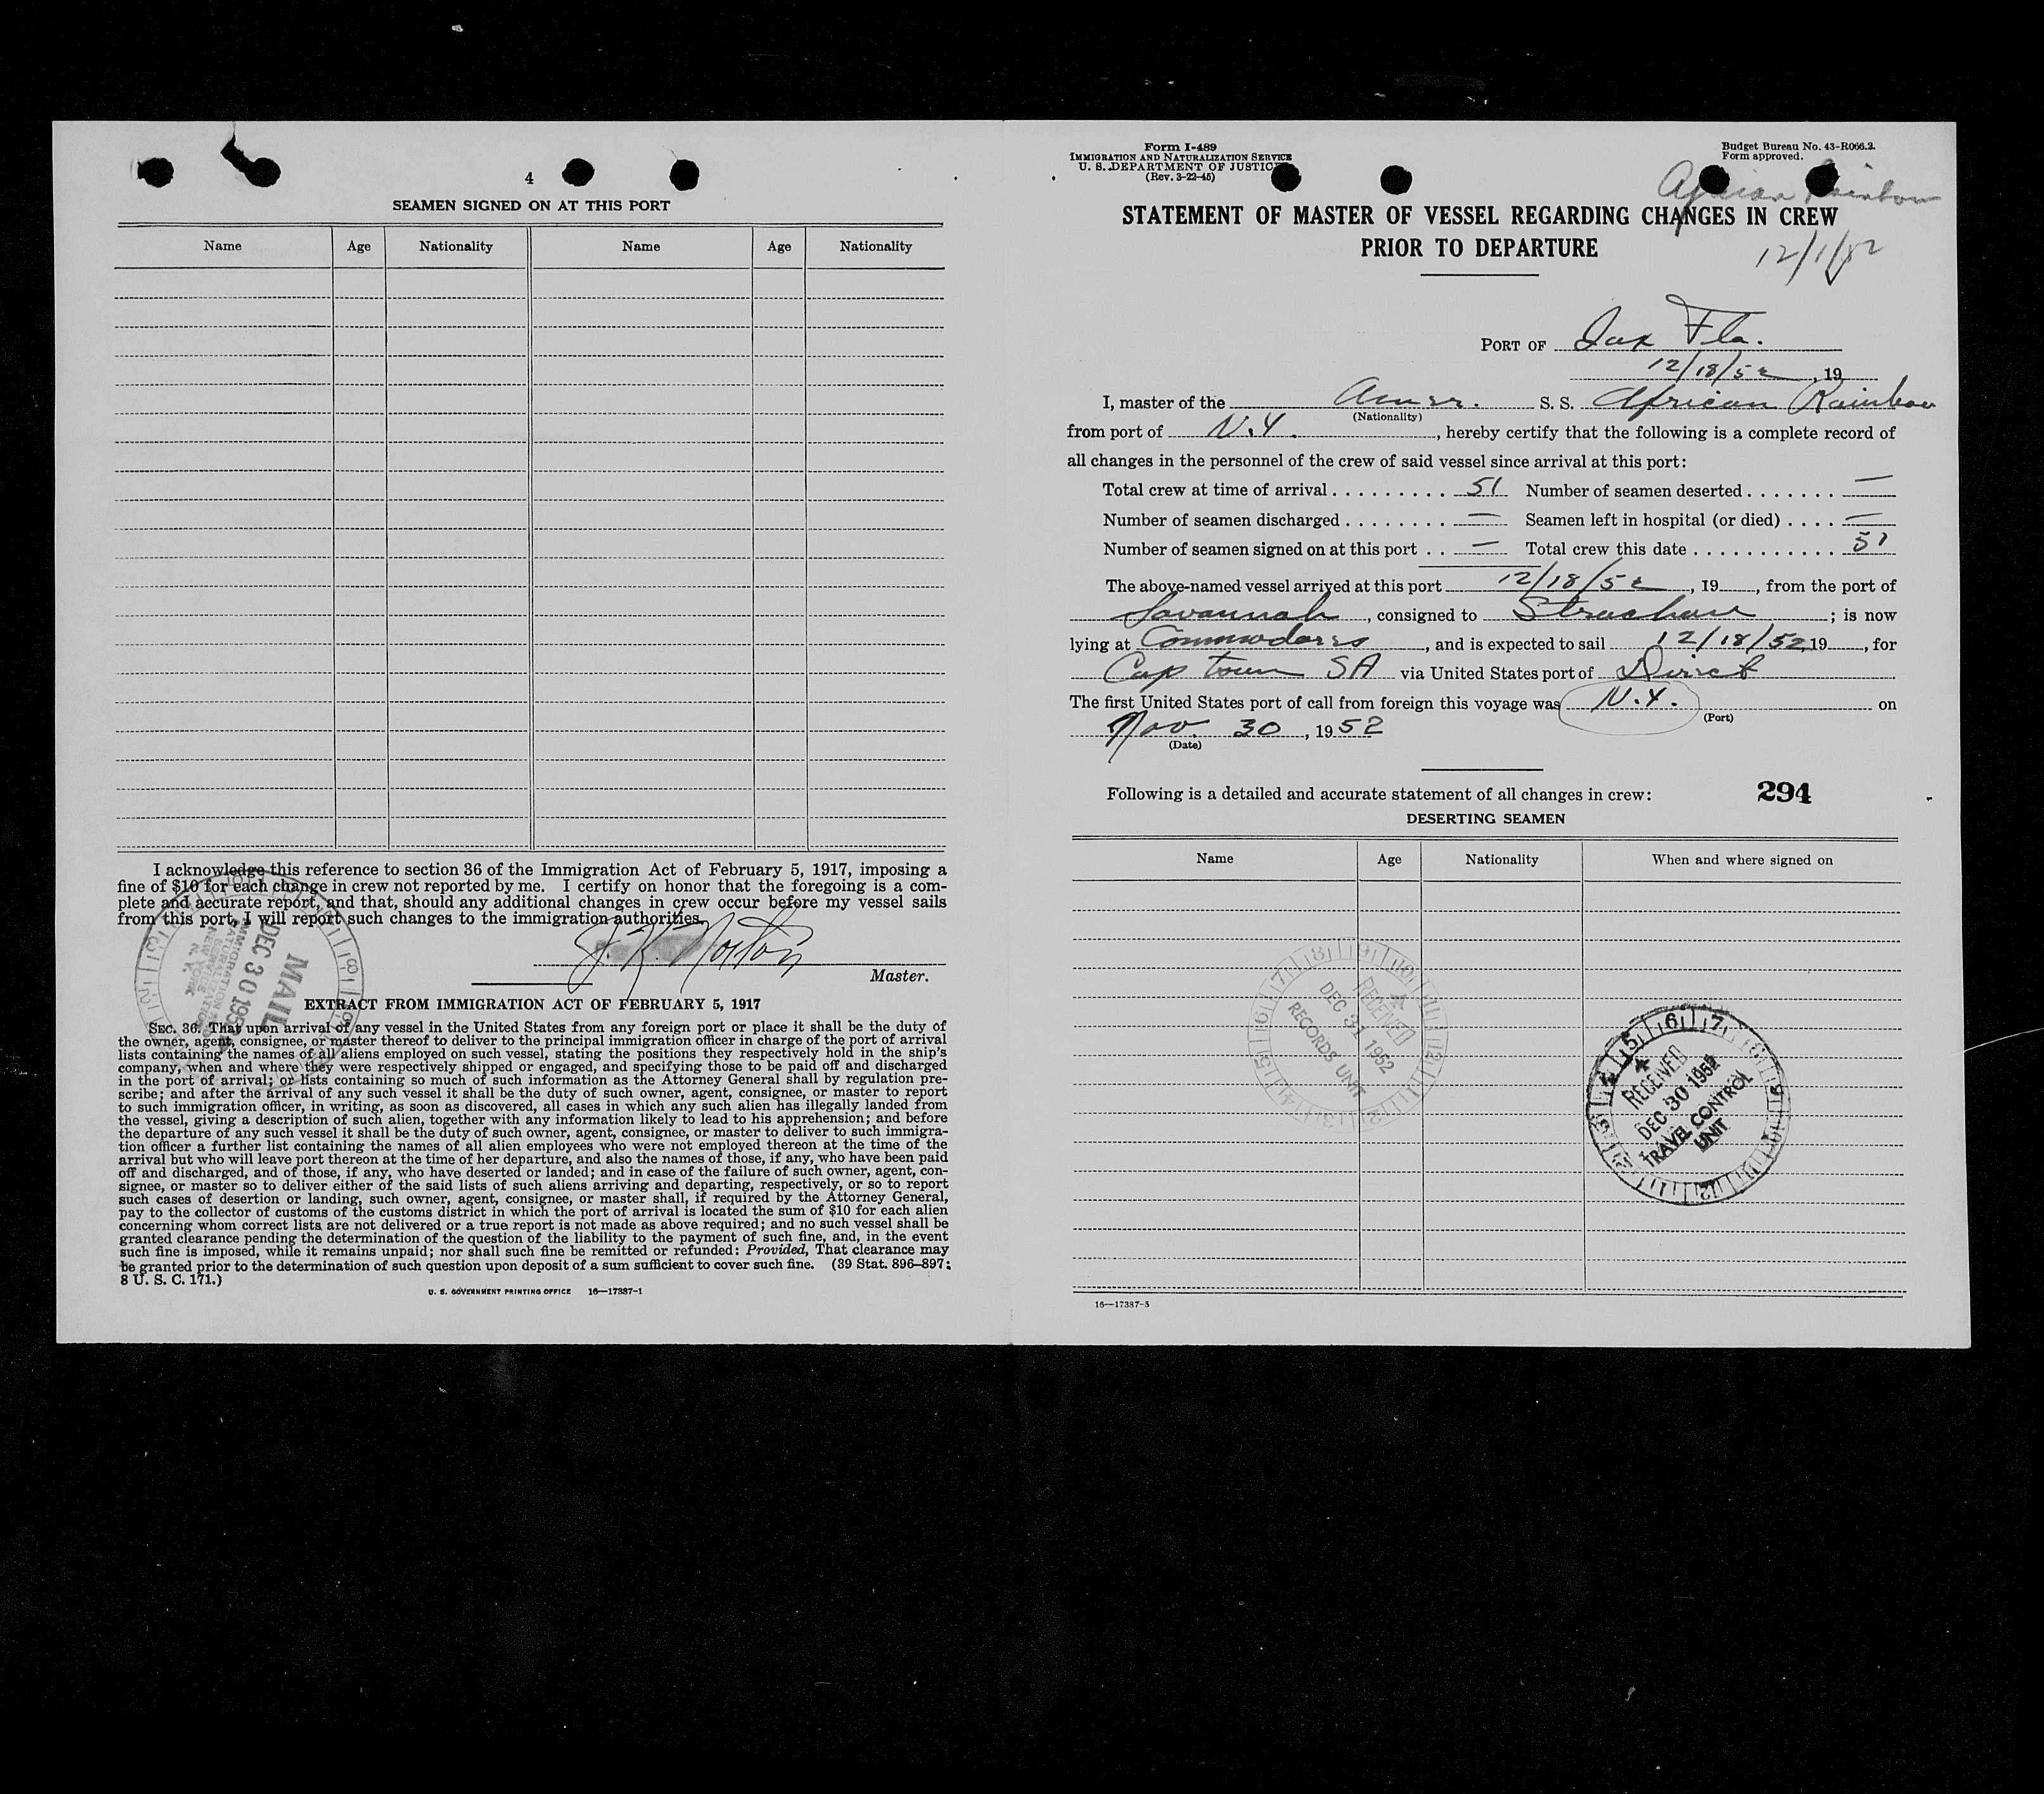 4
SEAMEN SIGNED ON AT THIS PORT
Name Age Nationality Name Age Nationality
I acknowledge this reference to section 36 of the Immigration Act of February 5, 1917, imposing a
fine of $10 for each change in crew not reported by me. I certify on honor that the foregoing is a com-
plete and accurate report, and that, should any additional changes in crew occur before my vessel sails
from this port, I will report such changes to the immigration authorities.
J. K. Norton
Master.
MAIL
DEC 30 1952
EXTRACT FROM IMMIGRATION ACT OF FEBRUARY 5, 1917
SEC. 36. That upon arrival of any vessel in the United States from any foreign port or place it shall be the duty of
the owner, agent, consignee, or master thereof to deliver to the principal immigration officer in charge of the port of arrival
lists containing the names of all aliens employed on such vessel, stating the positions they respectively hold in the ship's
company, when and where they were respectively shipped or engaged, and specifying those to be paid off and discharged
in the port of arrival; or lists containing so much of such information as the Attorney General shall by regulation pre-
scribe; and after the arrival of any such vessel it shall be the duty of such owner, agent, consignee, or master to report
to such immigration officer, in writing, as soon as discovered, all cases in which any such alien has illegally landed from
the vessel, giving a description of such alien, together with any information likely to lead to his apprehension; and before
the departure of any such vessel it shall be the duty of such owner, agent, consignee, or master to deliver to such immigra-
tion officer a further list containing the names of all alien employees who were not employed thereon at the time of the
arrival but who will leave port thereon at the time of her departure, and also the names of those, if any, who have been paid
off and discharged, and of those, if any, who have deserted or landed; and in case of the failure of such owner, agent, con-
signee, or master so to deliver either of the said lists of such aliens arriving and departing, respectively, or so to report
such cases of desertion or landing, such owner, agent, consignee, or master shall, if required by the Attorney General,
pay to the collector of customs of the customs district in which the port of arrival is located the sum of $10 for each alien
concerning whom correct lists are not delivered or a true report is not made as above required; and no such vessel shall be
granted clearance pending the determination of the question of the liability to the payment of such fine, and, in the event
such fine is imposed, while it remains unpaid; nor shall such fine be remitted or refunded: Provided, That clearance may
be granted prior to the determination of such question upon deposit of a sum sufficient to cover such fine. (39 Stat. 896–897;
8 U. S. C. 171.)
U. S. GOVERNMENT PRINTING OFFICE 16—17387-1
Form I-489
IMMIGRATION AND NATURALIZATION SERVICE
U. S. DEPARTMENT OF JUSTICE
(Rev. 3-22-45)
Budget Bureau No. 43-R066.2.
Form approved.
African Rainbow
STATEMENT OF MASTER OF VESSEL REGARDING CHANGES IN CREW
PRIOR TO DEPARTURE
12/1/52
PORT OF Jax Fla.
12/18/52, 19
I, master of the Amer. S. S. African Rainbow
(Nationality)
from port of N.Y., hereby certify that the following is a complete record of
all changes in the personnel of the crew of said vessel since arrival at this port:
Total crew at time of arrival 51 Number of seamen deserted —
Number of seamen discharged — Seamen left in hospital (or died) —
Number of seamen signed on at this port — Total crew this date 51
The above-named vessel arrived at this port 12/18/52, 19, from the port of
Savannah, consigned to Strachan; is now
lying at Commodores, and is expected to sail 12/18/52 19, for
Cap town SA via United States port of Direct
The first United States port of call from foreign this voyage was N.Y. on
(Port)
Nov. 30, 1952
(Date)
Following is a detailed and accurate statement of all changes in crew: 294
DESERTING SEAMEN
Name Age Nationality When and where signed on
RECEIVED
DEC 31 1952
RECORDS UNIT
RECEIVED
DEC 30 1952
TRAVEL CONTROL
UNIT
16—17387-3